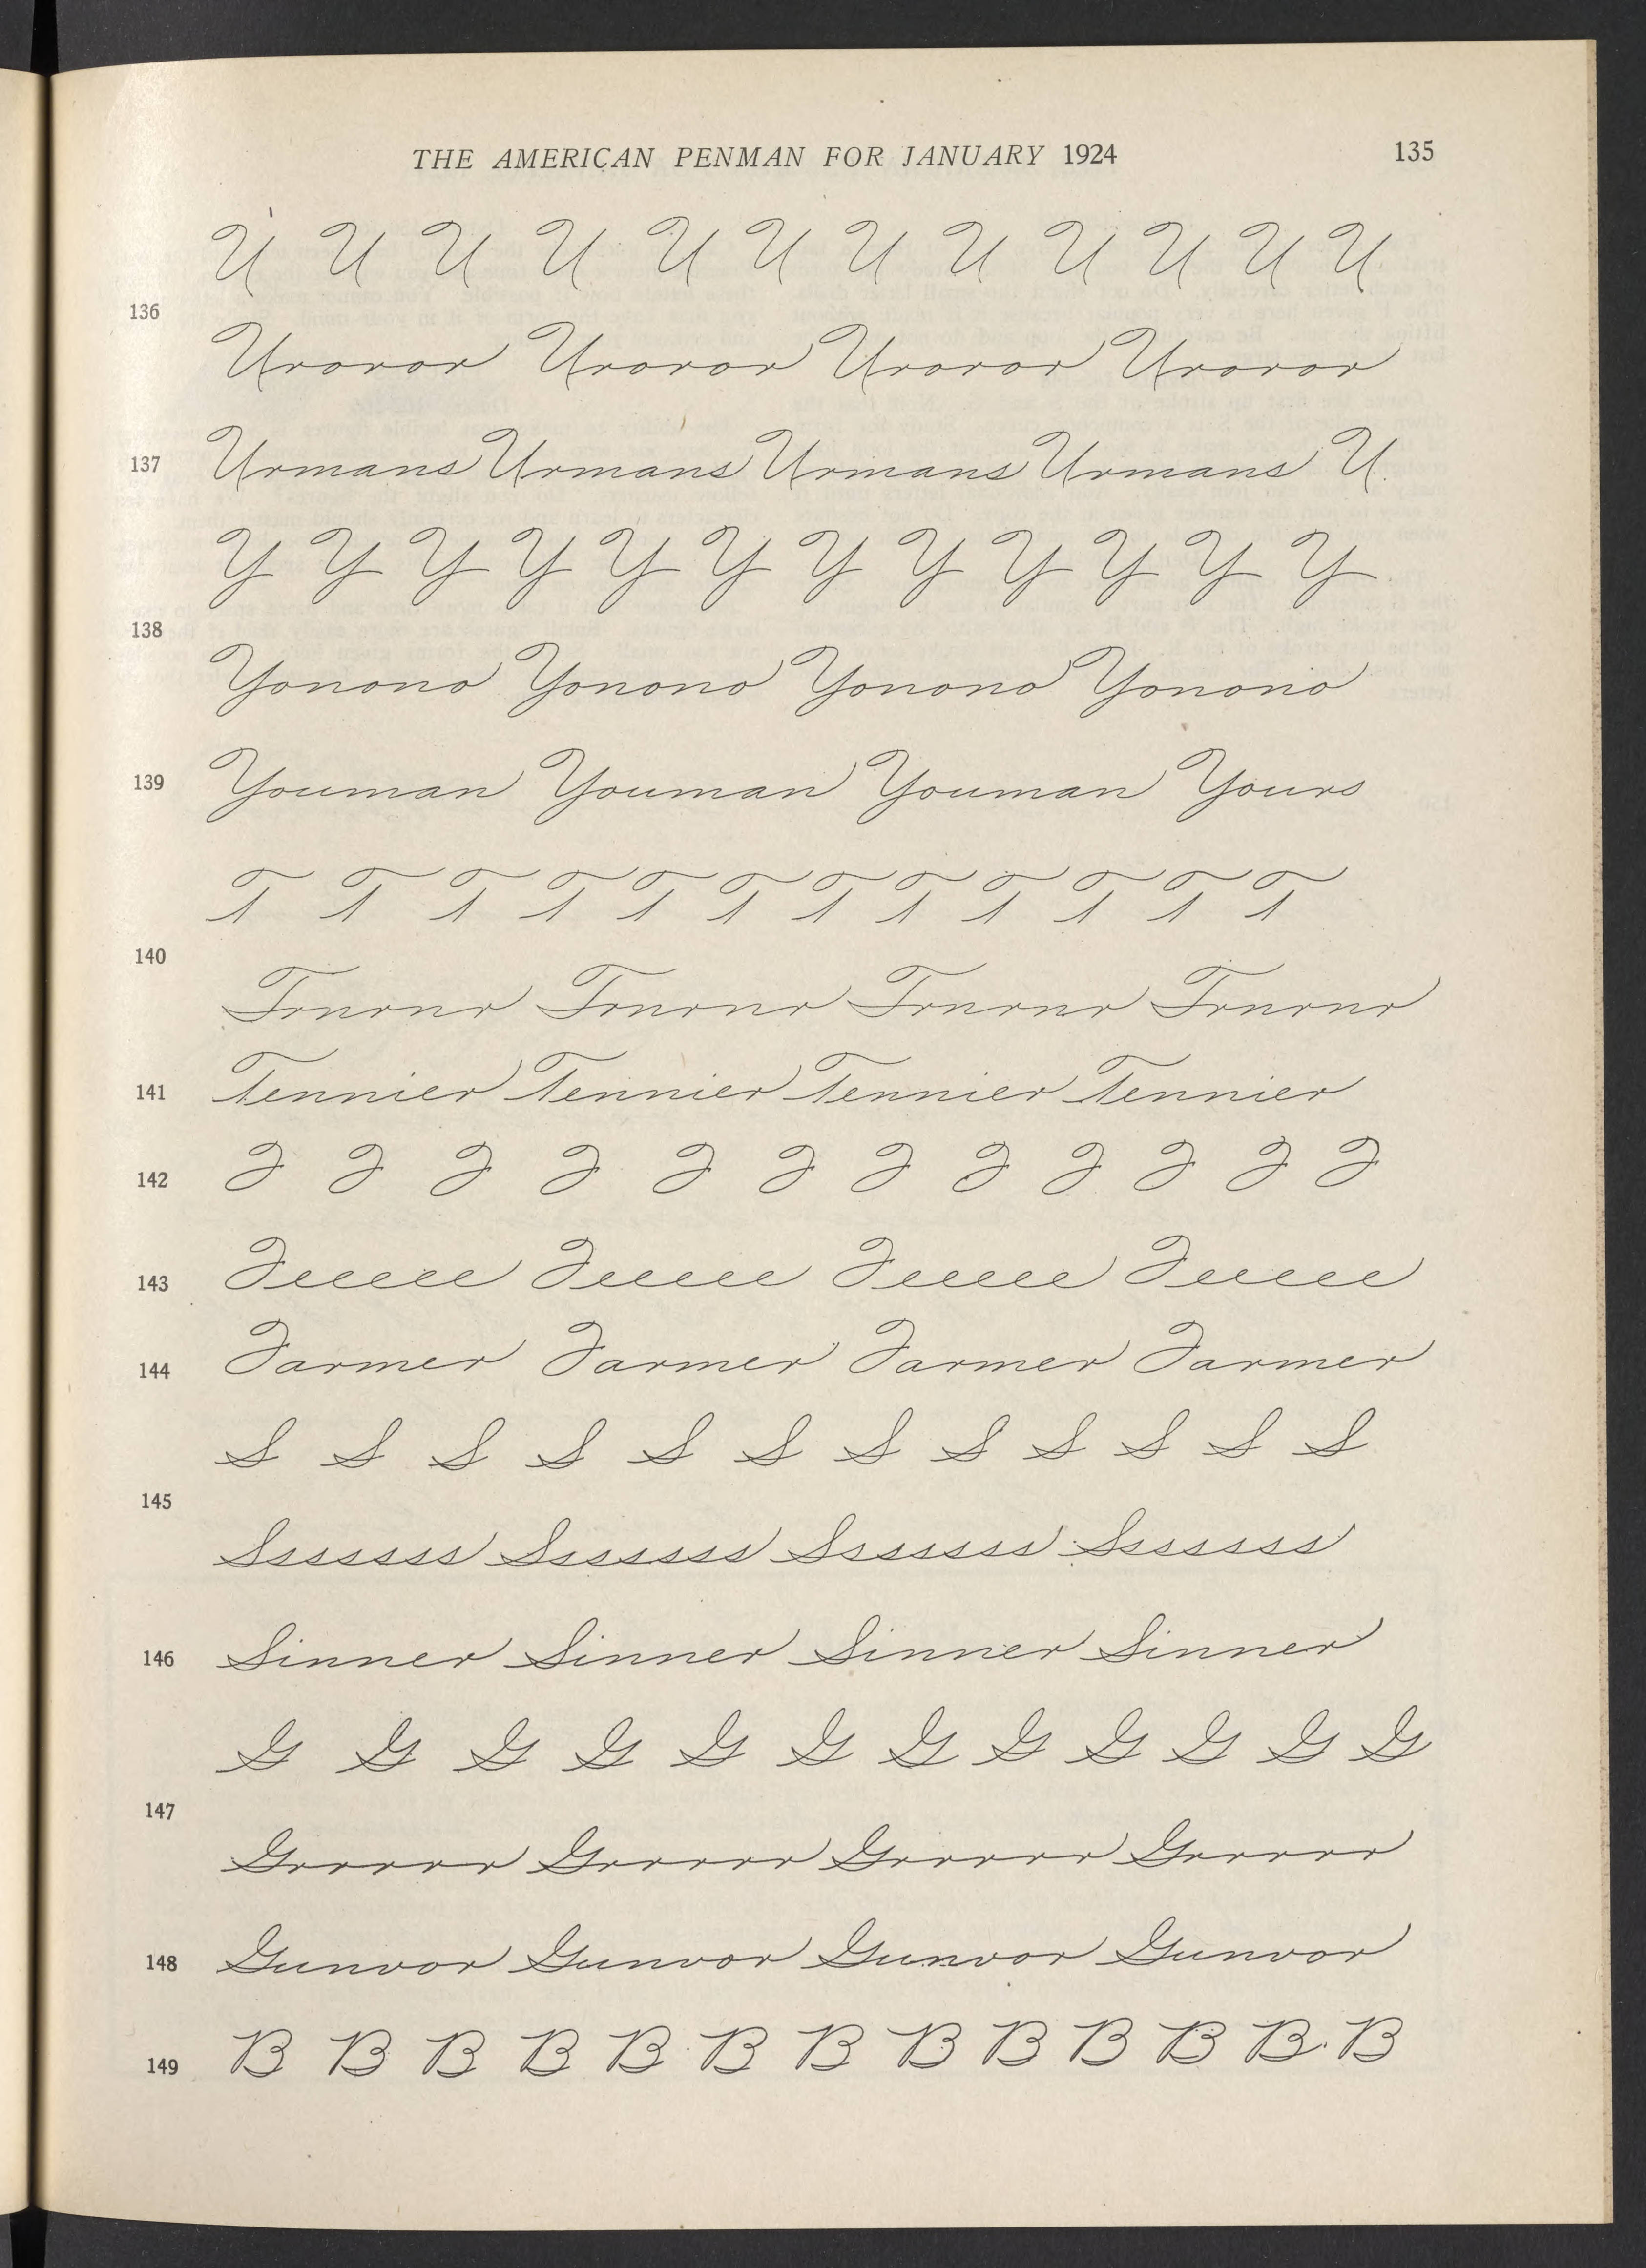 THE AMERICAN PENMAN FOR JANUARY 1924 135
U U U U U U U U U U U U
136
Uroror Uroror Uroror Uroror
137 Urmans Urmans Urmans Urmans U
Y Y Y Y Y Y Y Y Y Y Y Y
138
Yonono Yonono Yonono Yonono
139 Youman Youman Youman Yours
T T T T T T T T T T T T
140
Trnrnr Trnrnr Trnrnr Trnrnr
141 Tennier Tennier Tennier Tennier
142 F F F F F F F F F F F F
143 Feeeee Feeeee Feeeee Feeeee
144 Farmer Farmer Farmer Farmer
S S S S S S S S S S S S
145
Sssssss Sssssss Sssssss Sssssss
146 Sinner Sinner Sinner Sinner
G G G G G G G G G G G G
147
Grrrrr Grrrrr Grrrrr Grrrrr
148 Gunvor Gunvor Gunvor Gunvor
149 B B B B B B B B B B B B B